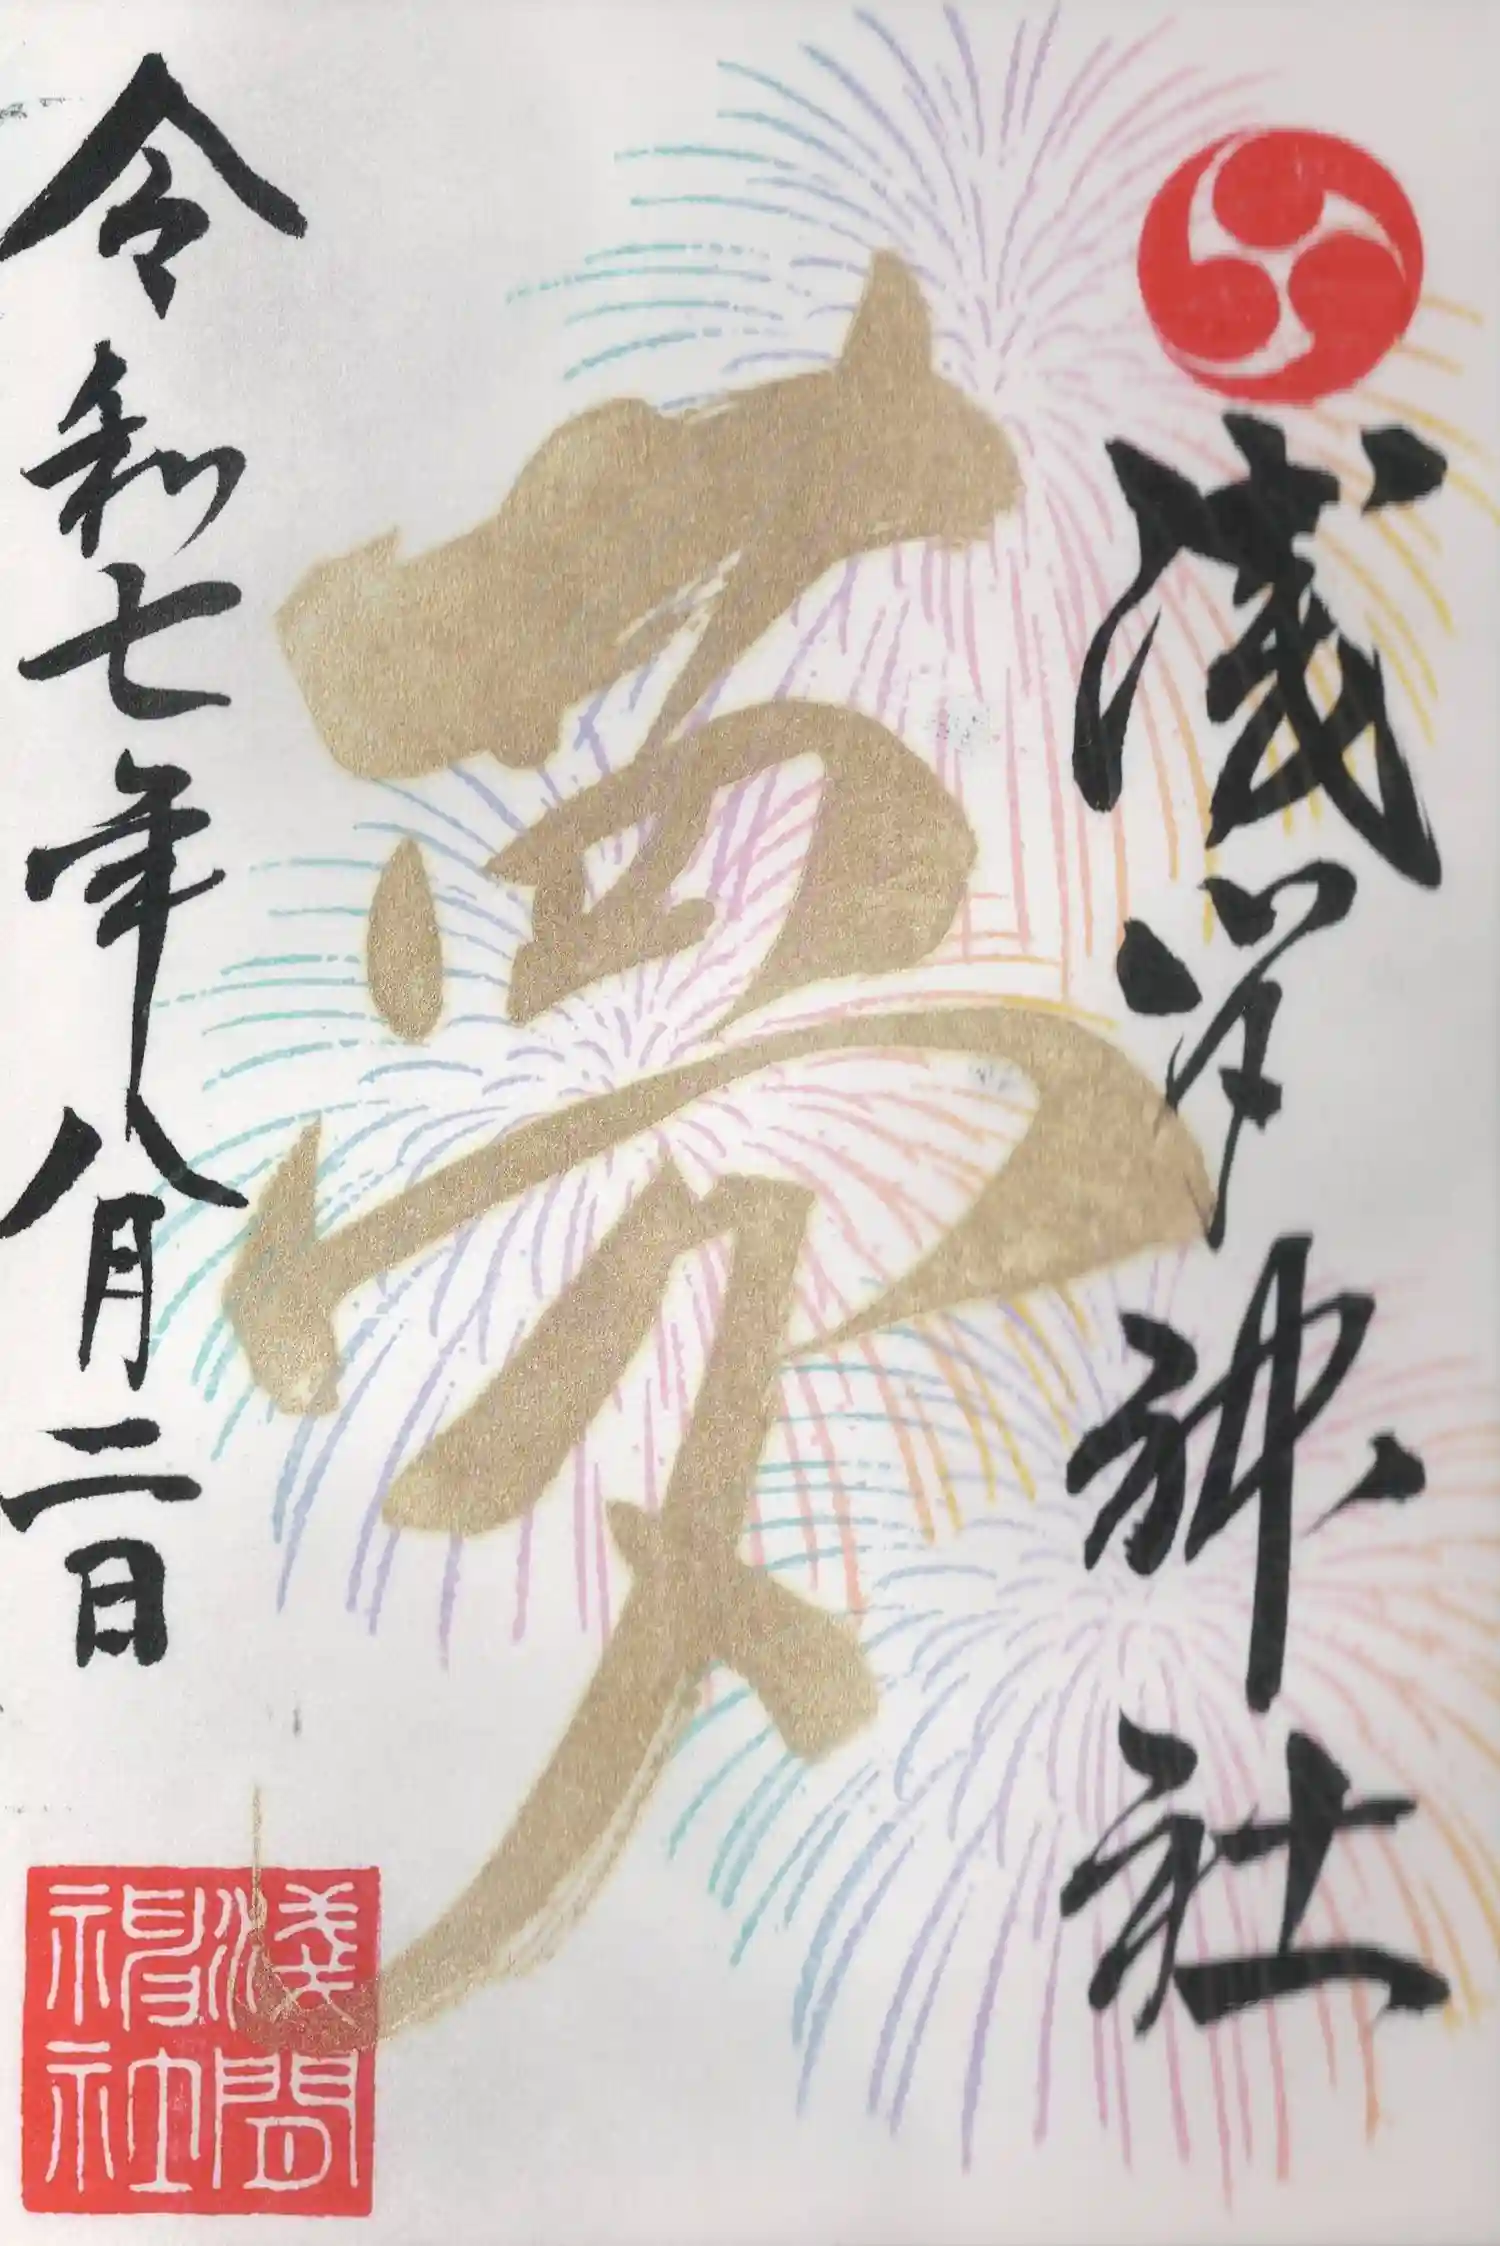 淺間神社
夢
令和七年八月二日
淺間
神社